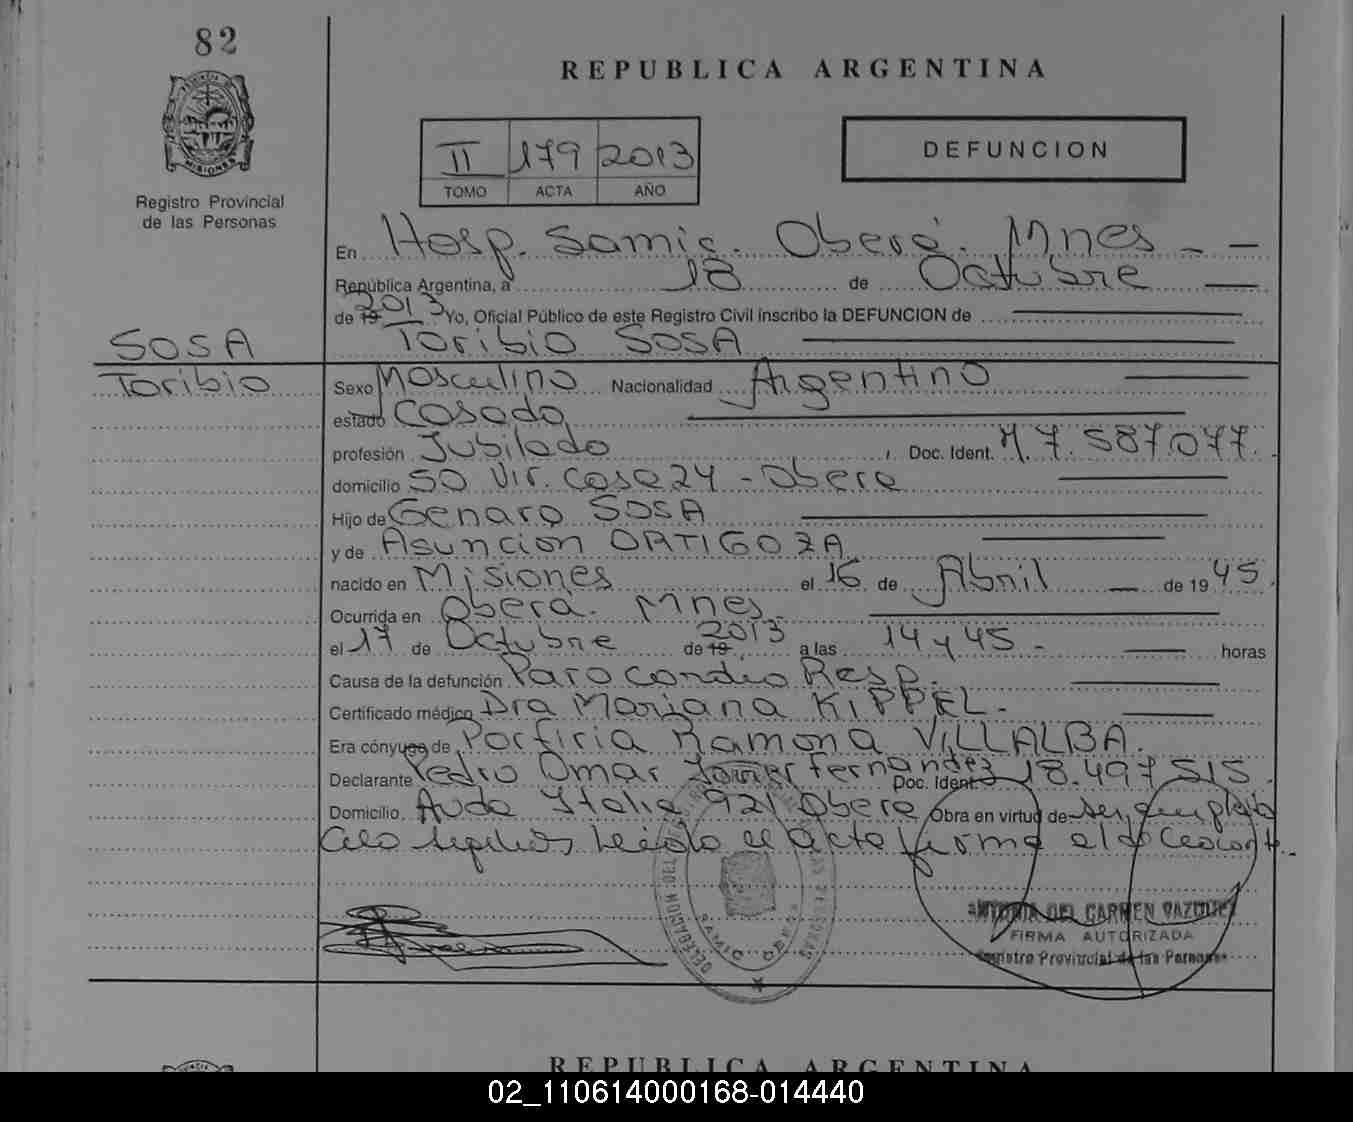 82
REPUBLICA ARGENTINA
II 179 2013
TOMO ACTA AÑO
DEFUNCION
MISIONES
Registro Provincial
de las Personas
En Hosp. Samic. Oberá. Mnes
República Argentina, a 18 de Octubre
de 19 2013 Yo, Oficial Público de este Registro Civil inscribo la DEFUNCION de
SOSA
Toribio SOSA
Toribio
Sexo Masculino Nacionalidad Argentino
estado Casado
profesión Jubilado , Doc. Ident. M. 7.587.077.
domicilio 50 Viv. Casa 24 - Obera
Hijo de Genaro SOSA
y de Asuncion ORTIGOZA
nacido en Misiones el 16 de Abril de 1945.
Ocurrida en Oberá. Mnes.
el 17 de Octubre de 19 2013 a las 14 y 45 - horas
Causa de la defunción Paro Cardio Resp.
Certificado médico Dra Mariana KIPPEL.
Era cónyuge de Porfiria Ramona VILLALBA.
Declarante Pedro Omar Javier Fernandez Doc. Ident. 18.497.515.
Domicilio. Avda Italia 921 Obera Obra en virtud de ser empleado
Leido el acta firma el declarante.
ANTONIA DEL CARMEN VAZQUEZ
FIRMA AUTORIZADA
Registro Provincial de las Personas
REPUBLICA ARGENTINA
02_110614000168-014440